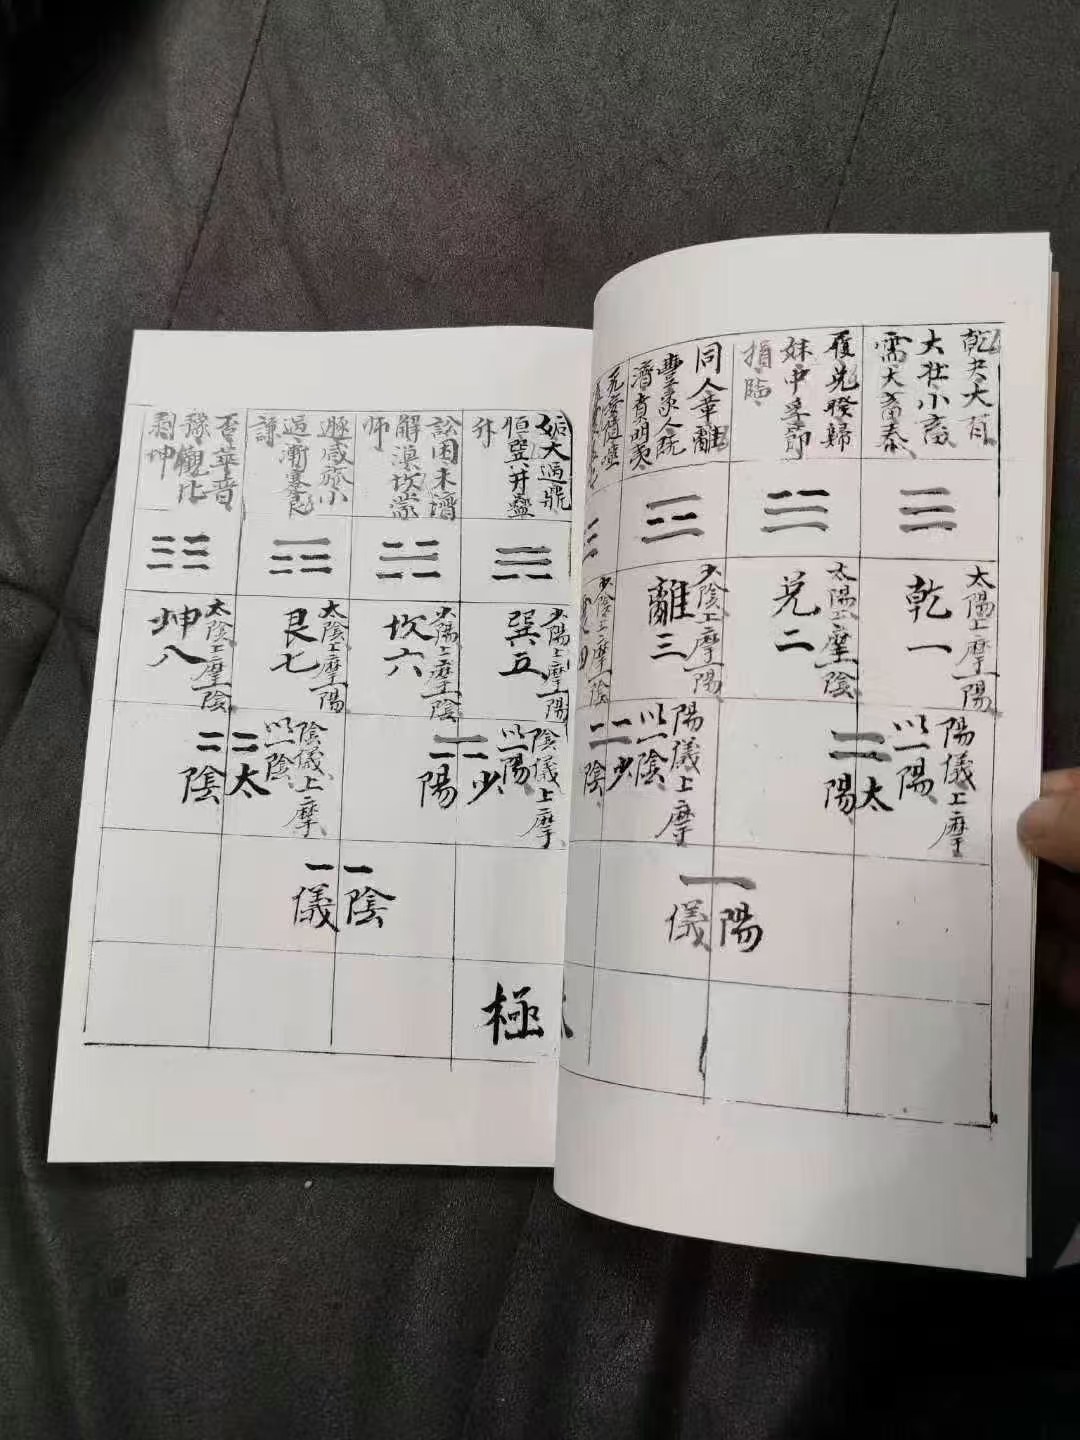 乾夬大有
大壯小畜
需大畜泰
履兌睽歸
妹中孚節
損臨
同人革離
豐家人既
濟賁明夷
无妄隨噬
姤大過鼎
恒巽井蠱
升
訟困未濟
解渙坎蒙
師
遯咸旅小
過漸蹇艮
謙
否萃晉
豫觀比
剝坤
太陽上摩一陽
乾一
太陽上摩一陰
兌二
少陰上摩一陽
離三
少陰上摩一陰
四
少陽上摩一陽
巽五
少陽上摩一陰
坎六
太陰上摩一陽
艮七
太陰上摩一陰
坤八
陽儀上摩
以一陽
太
陽
陽儀上摩
以一陰
少
陰
陰儀上摩
以一陽
少
陽
陰儀上摩
以一陰
太
陰
陽
儀
陰
儀
極